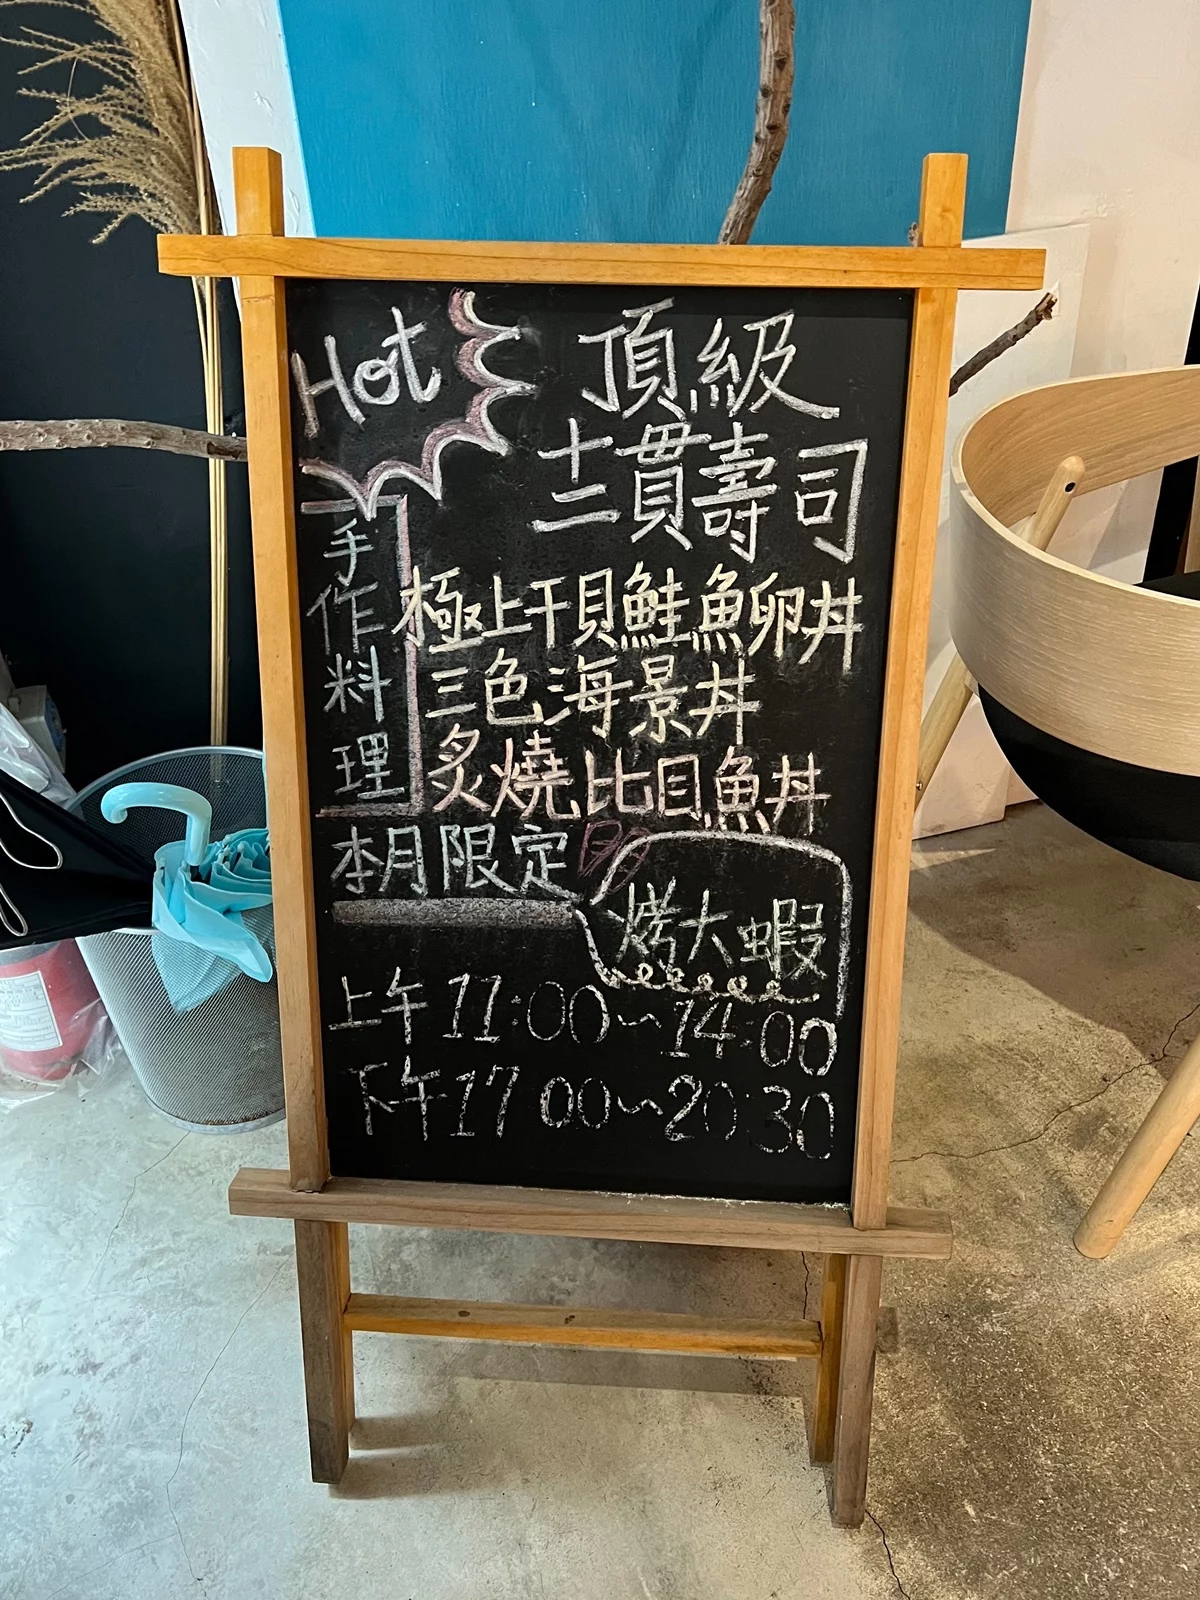 Hot
頂級
十二貫壽司
手作料理
極上干貝鮭魚卵丼
三色海景丼
炙燒比目魚丼
本月限定
烤大蝦
上午11:00~14:00
下午17 00~20:30